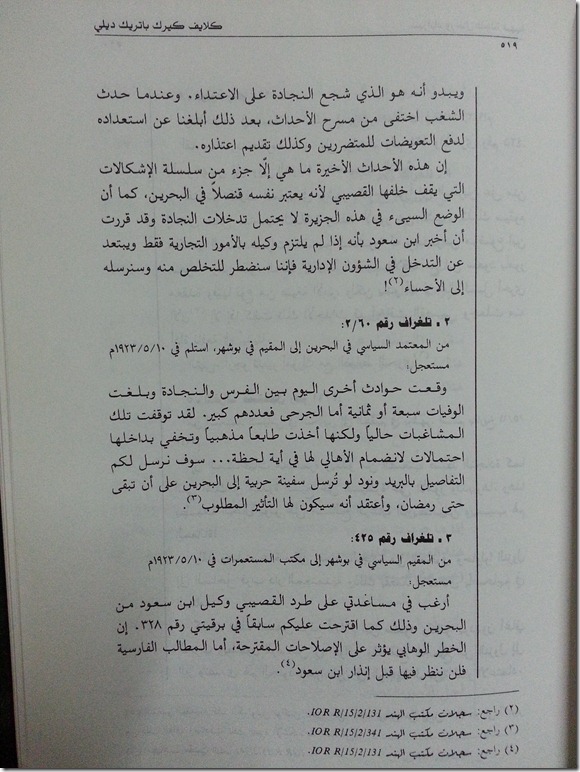 كلايف كيرك باتريك ديلي
٥١٩
ويبدو أنه هو الذي شجع النجادة على الاعتداء. وعندما حدث
الشغب اختفى من مسرح الأحداث، بعد ذلك أبلغنا عن استعداده
لدفع التعويضات للمتضررين وكذلك تقديم اعتذاره.
إن هذه الأحداث الأخيرة ما هي إلّا جزء من سلسلة الإشكالات
التي يقف خلفها القصيبي لأنه يعتبر نفسه قنصلاً في البحرين، كما أن
الوضع السيىء في هذه الجزيرة لا يحتمل تدخلات النجادة وقد قررت
أن أخبر ابن سعود بأنه إذا لم يلتزم وكيله بالأمور التجارية فقط ويبتعد
عن التدخل في الشؤون الإدارية فإننا سنضطر للتخلص منه وسنرسله
إلى الأحساء(٢)!
٢ ـ تلغراف رقم ٢/٦٠:
من المعتمد السياسي في البحرين إلى المقيم في بوشهر، استلم في ١٩٢٣/٥/١٠م
مستعجل:
وقعت حوادث أخرى اليوم بين الفرس والنجادة وبلغت
الوفيات سبعة أو ثمانية أما الجرحى فعددهم كبير. لقد توقفت تلك
المشاغبات حالياً ولكنها أخذت طابعاً مذهبياً وتخفي بداخلها
احتمالات لانضمام الأهالي لها في أية لحظة... سوف نرسل لكم
التفاصيل بالبريد ونود لو تُرسل سفينة حربية إلى البحرين على أن تبقى
حتى رمضان، وأعتقد أنه سيكون لها التأثير المطلوب(٣).
٣ ـ تلغراف رقم ٤٢٥:
من المقيم السياسي في بوشهر إلى مكتب المستعمرات في ١٩٢٣/٥/١٠م
مستعجل:
أرغب في مساعدتي على طرد القصيبي وكيل ابن سعود من
البحرين وذلك كما اقترحت عليكم سابقاً في برقيتي رقم ٣٢٨. إن
الخطر الوهابي يؤثر على الإصلاحات المقترحة، أما المطالب الفارسية
فلن ننظر فيها قبل إنذار ابن سعود(٤).
(٢) راجع: سجلات مكتب الهند IOR R/15/2/131.
(٣) راجع: سجلات مكتب الهند IOR R/15/2/341.
(٤) راجع: سجلات مكتب الهند IOR R/15/2/131.